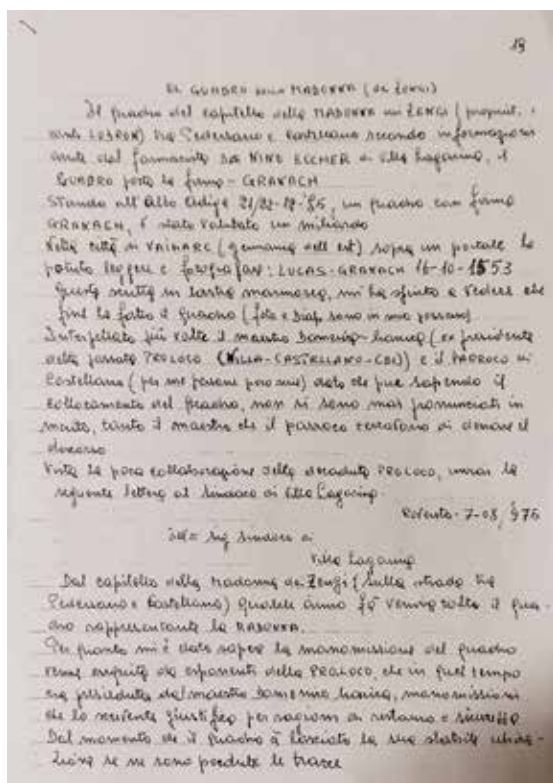 19
EL QUADRO DELLA MADONNA (DE ZENGI)
Il quadro del capitello della MADONNA dei ZENGI (propriet.
conti LODRON) tra Pedersano e Castellano secondo informazioni
avute dal farmacista sa NINO ECCHER di Villa Lagarina, il
QUADRO porta la firma - GRANACH
Stando all'Alto Adige 21/22-12-'85, un quadro con firma
GRANACH, è stato valutato un miliardo
Nella città di VAIMARC (Germania dell'est) sopra un portale ho
potuto leggere e fotografare: LUCAS-GRANACH 16-10-1553
Questa scritta in lastra marmorea, mi ha spinto a vedere che
fine ha fatto il quadro (foto e Diap. sono in mio possesso)
Interpellato più volte il maestro Domenico Manica (ex presidente
della passata PROLOCO (VILLA-CASTELLANO-CEI)) e il PARROCO di
Castellano (per me persone poco serie) dato che pur sapendo il
collocamento del quadro, non si sono mai pronunciati in
merito, tanto il maestro che il parroco cercavano di deviare il
discorso
Vista la poca collaborazione della decaduta PROLOCO, inviai la
seguente lettera al Sindaco di Villa Lagarina.
Rovereto-7-08/976
Sig Sindaco di
Villa Lagarina
Dal capitello della Madonna de Zengi (sulla strada tra
Pedersano e Castellano) qualche anno fà venne tolto il qua-
dro rappresentante la MADONNA.
Per quanto mi è dato sapere la manomissione del quadro
venne eseguita da esponenti della PROLOCO, che in quel tempo
era presieduta dal maestro Domenico Manica, manomissione
che lo scrivente giustifica per ragioni di restauro e sicurezza
Dal momento che il quadro à lasciato la sua stabile ubica-
zione se ne sono perdute le tracce